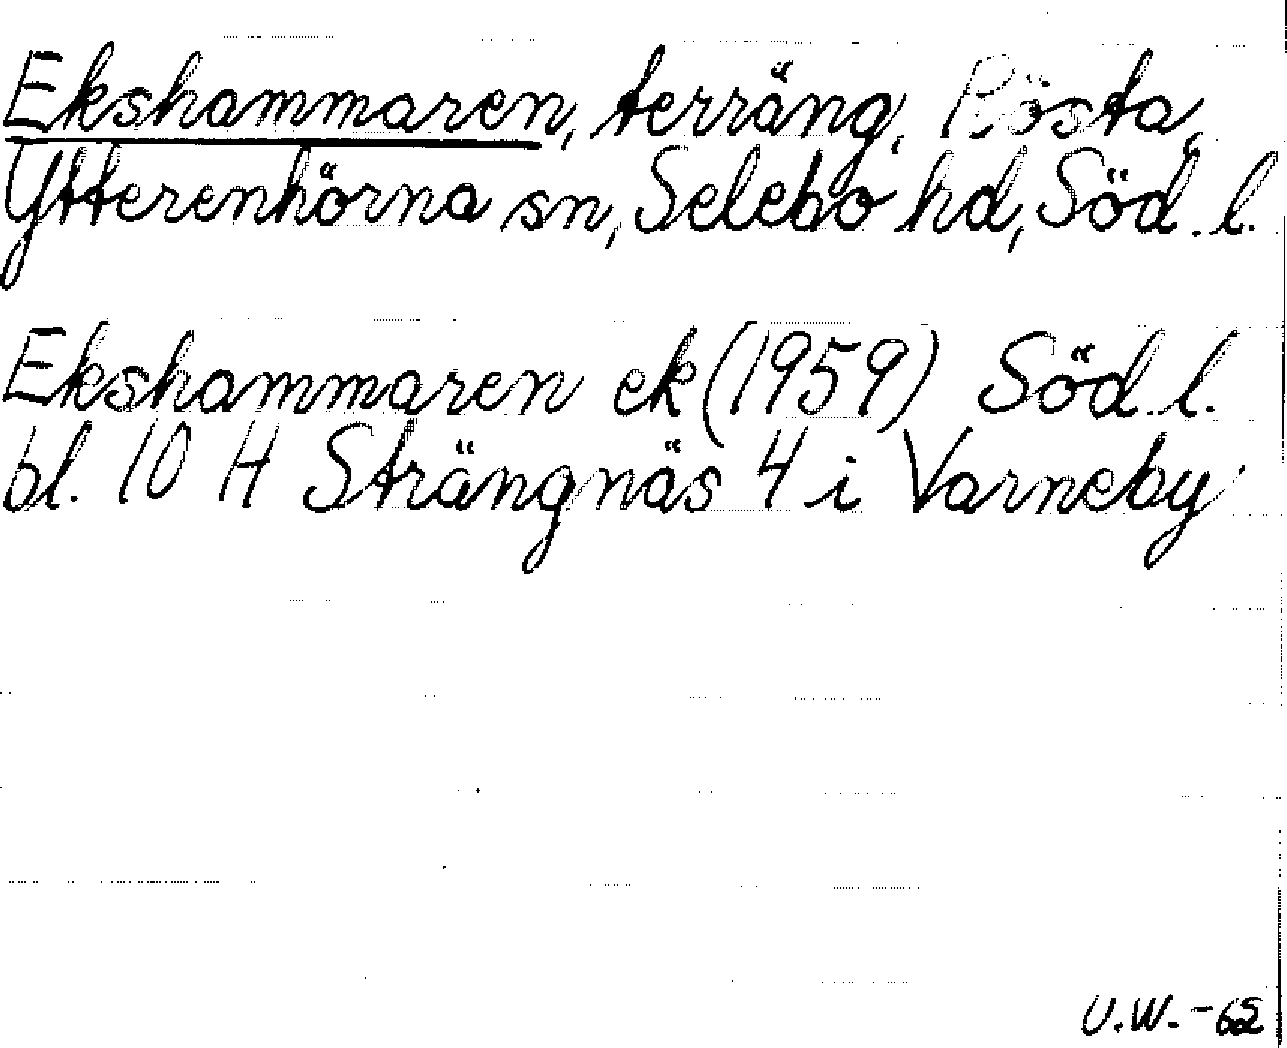 Ekshammaren, terräng, Rösta,
Ytterenhörna sn, Selebo hd, Söd. l.
Ekshammaren ek (1959) Söd. l.
bl. 10 H Strängnäs 4 i Varneby
U.W. -62